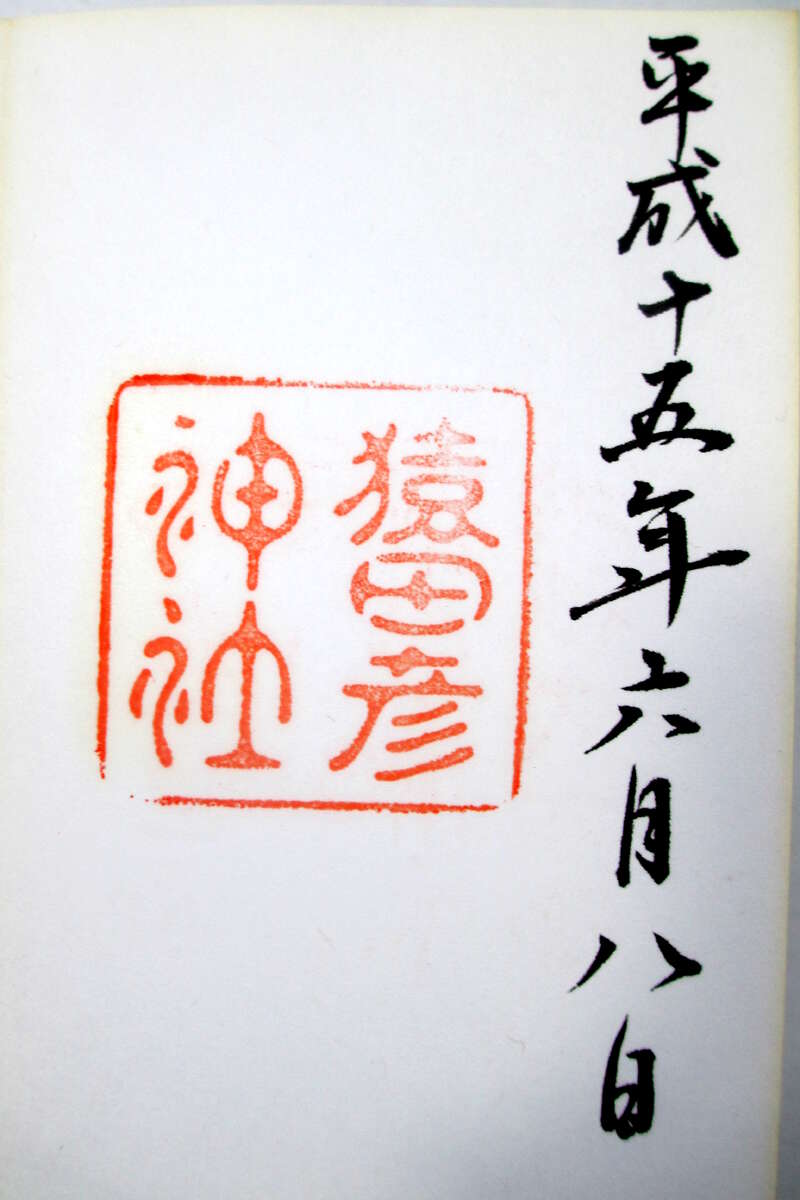 平成十五年六月八日
猿田彦
神社